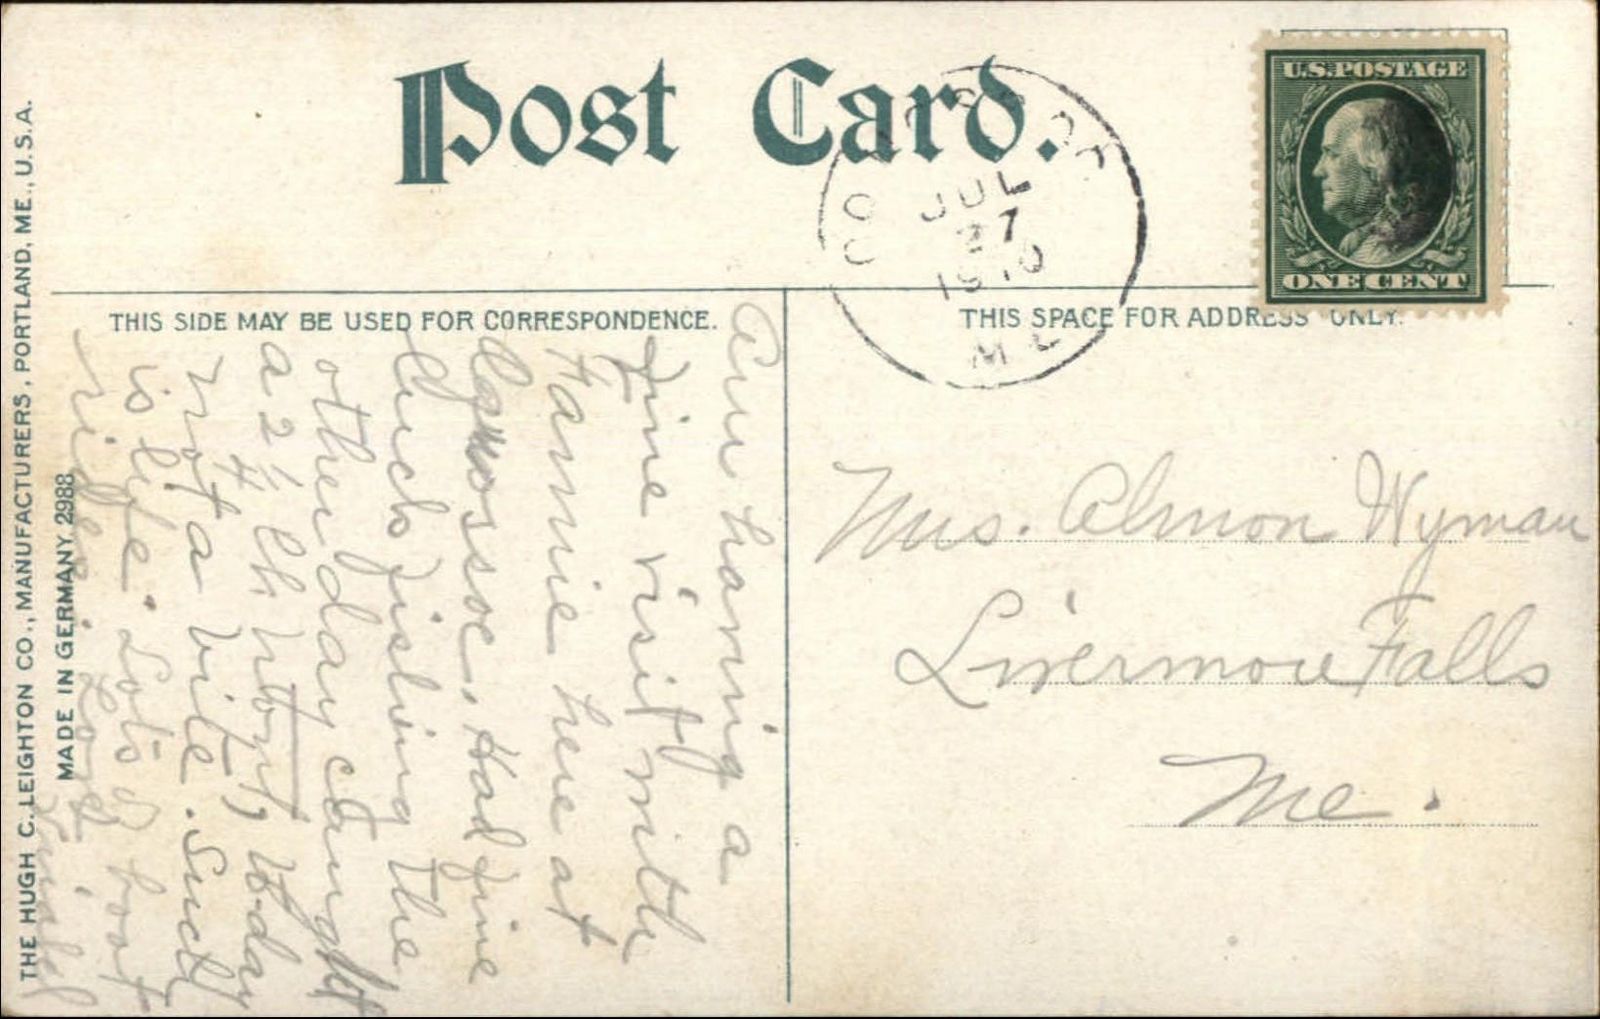 Post Card.
THIS SIDE MAY BE USED FOR CORRESPONDENCE.
THIS SPACE FOR ADDRESS ONLY.
U.S. POSTAGE
ONE CENT
JUL
27
1910
ME
THE HUGH C. LEIGHTON CO., MANUFACTURERS, PORTLAND, ME., U.S.A.
MADE IN GERMANY. 2988
Am having a
fine visit with
Fannie here at
Oquossoc. Had fine
luck fishing the
other day caught
a 2 1/4 lb
not a bite. Such
is life. Lots of boat
rides. Love
Mrs. Almon Wyman
Livermore Falls
Me.